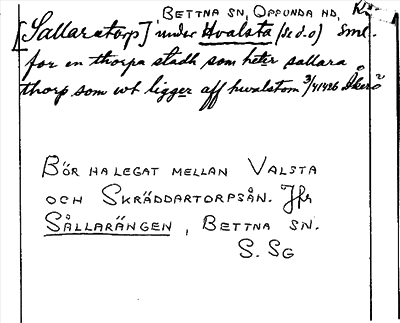 BETTNA SN, OPPUNDA HD,
[Sallaratorp] under Hvalsta (se d.o) Sml.
for en thorpa stadh som heter sallara
thorp som wt ligger aff hwalstom 3/4 1426 Åkerö
BÖR HA LEGAT MELLAN VALSTA
OCH SKRÄDDARTORPSÅN. Jfr
SÅLLARÄNGEN, BETTNA SN.
S. SG